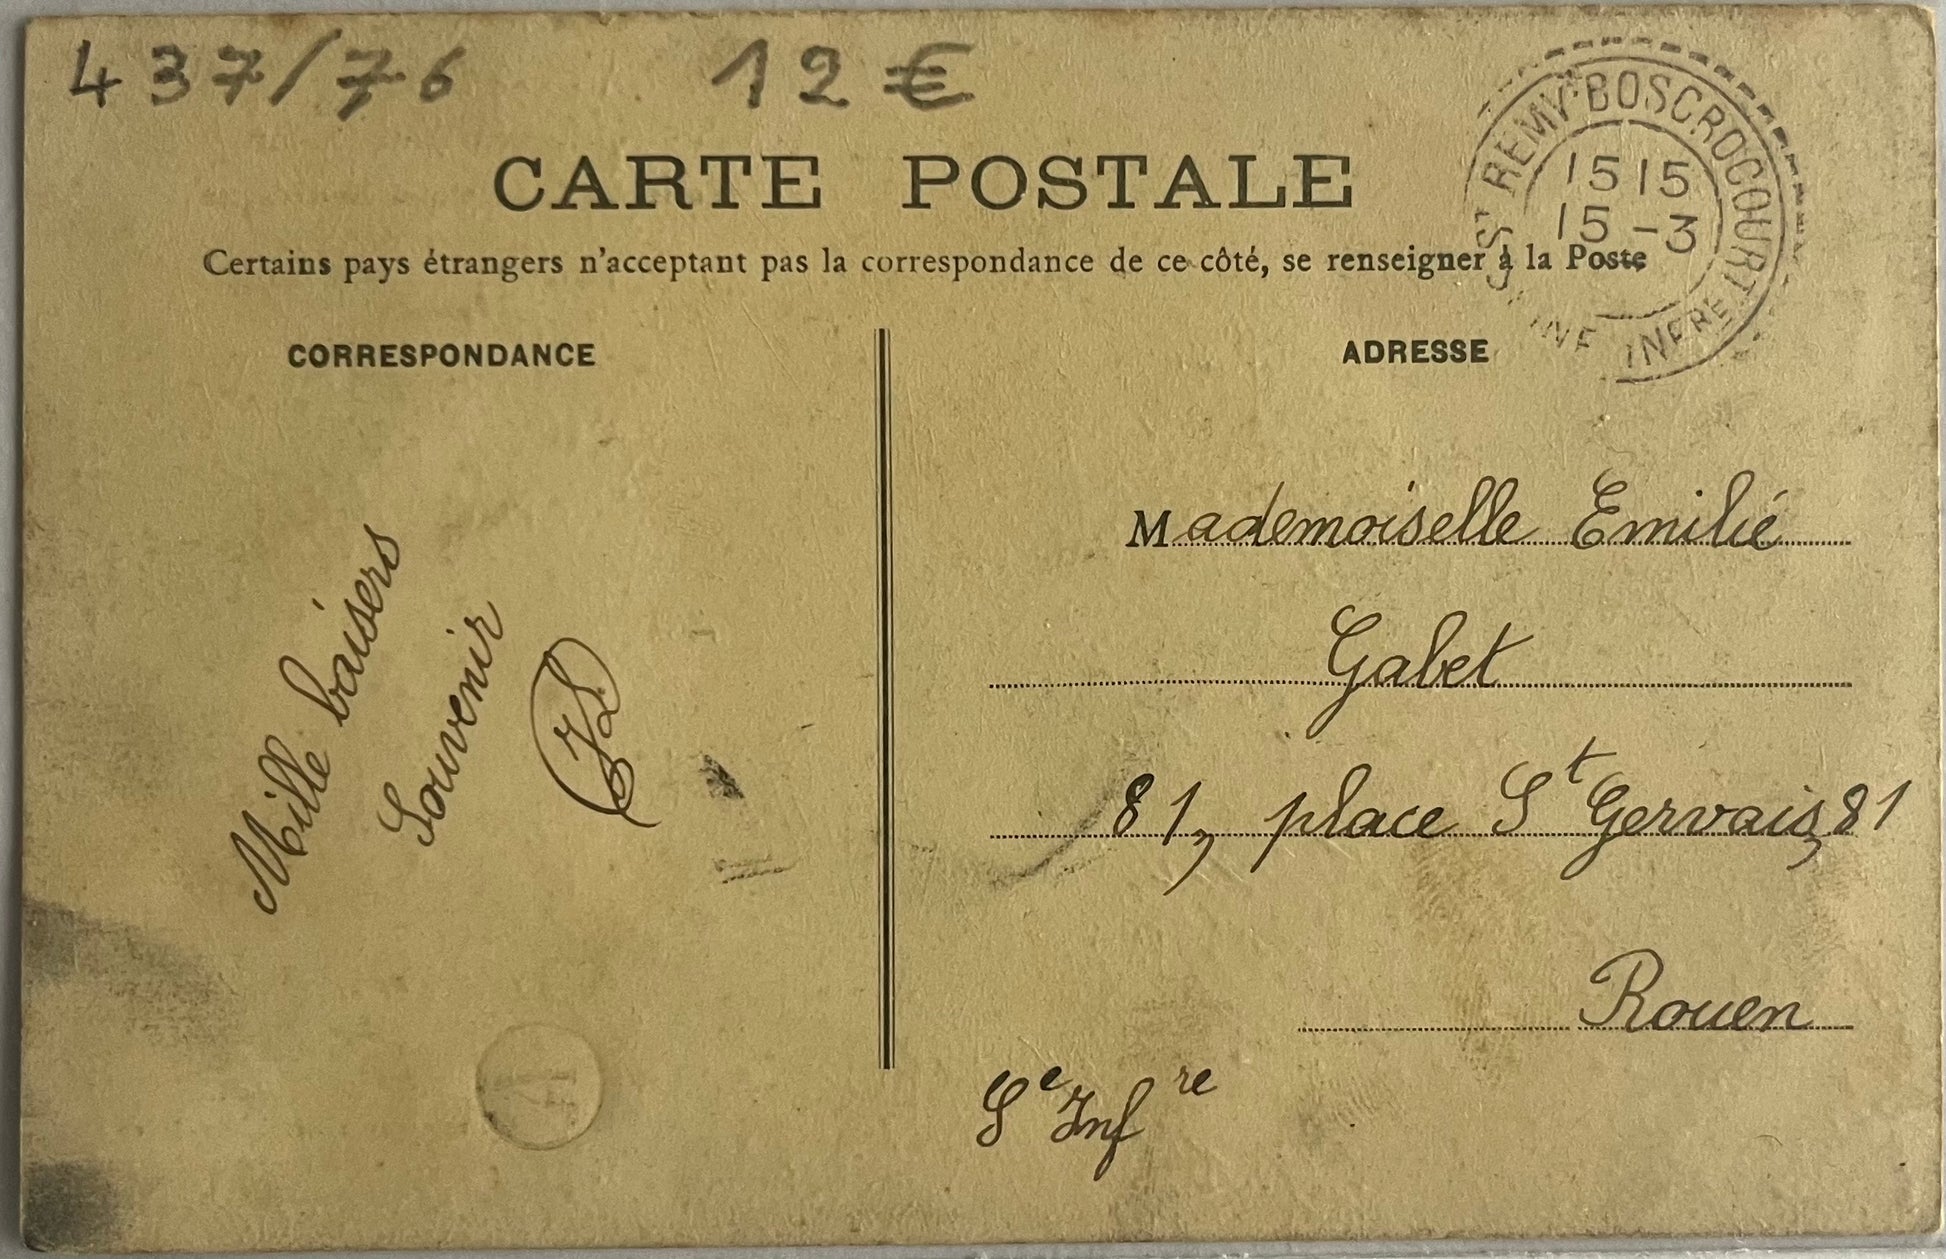 437/76 12 €
CARTE POSTALE
Certains pays étrangers n'acceptant pas la correspondance de ce côté, se renseigner à la Poste
ST REMY BOSCROCOURT
15 15
15 -3
INFRE
CORRESPONDANCE
ADRESSE
Mille baisers
Souvenir
Mademoiselle Emilié
Gabet
81, place St Gervais, 81
Rouen
Se Infre